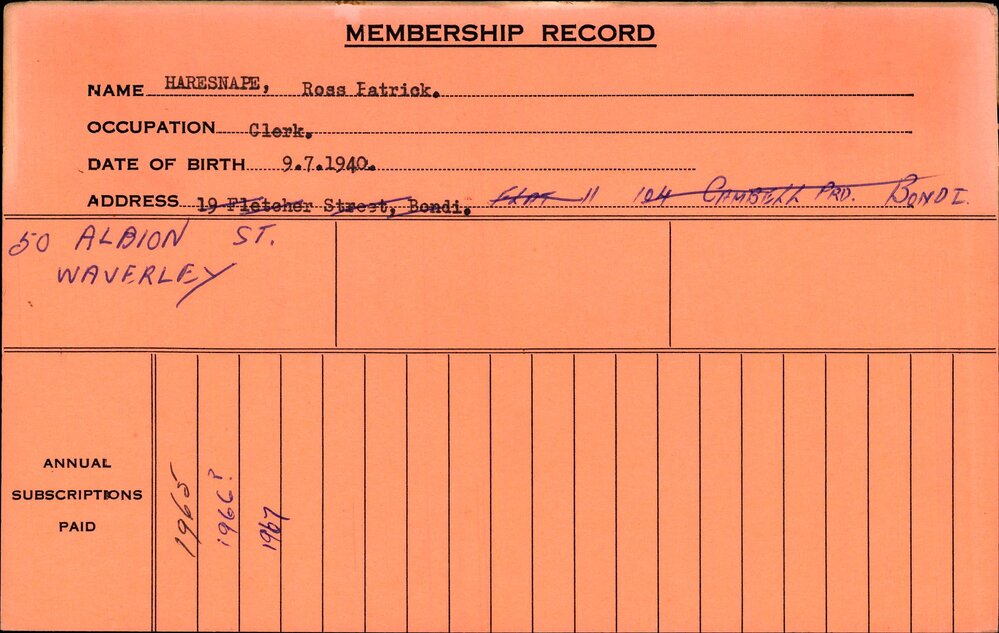 MEMBERSHIP RECORD
NAME HARESNAPE, Ross Patrick.
OCCUPATION Clerk.
DATE OF BIRTH 9.7.1940.
ADDRESS 19 Fletcher Street, Bondi. FLAT 11 124 CAMBELL PRD. BONDI.
50 ALBION ST.
WAVERLEY
ANNUAL
SUBSCRIPTIONS
PAID
1965
1966?
1967